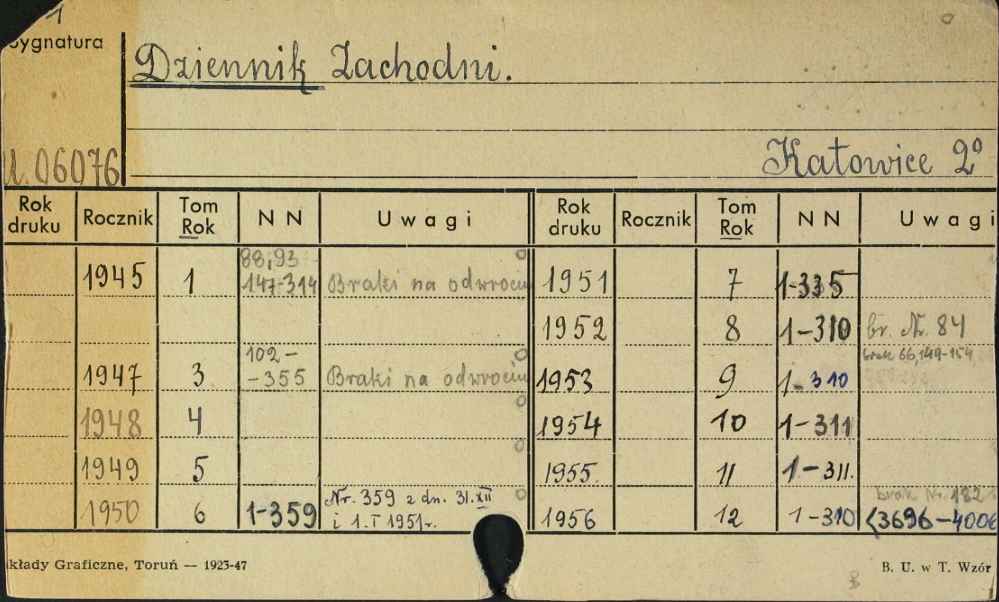 Sygnatura
Dziennik Zachodni.
U. 06076
Katowice 2º
Rok druku Rocznik Tom Rok N N Uwagi Rok druku Rocznik Tom Rok N N Uwagi
1945 1 88,93 147-314 Braki na odwrociu
1951 7 1-335
1952 8 1-310 br. Nr. 84
1947 3 102- -355 Braki na odwrociu
1953 9 1-310 brak 66,149-154
1948 4
1954 10 1-311
1949 5
1955. 11 1-311.
1950 6 1-359 Nr. 359 z dn. 31.XII i 1.I 1951r.
1956 12 1-310 brak Nr. 182 (3696-4006
kłady Graficzne, Toruń — 1923-47
B. U. w T. Wzór